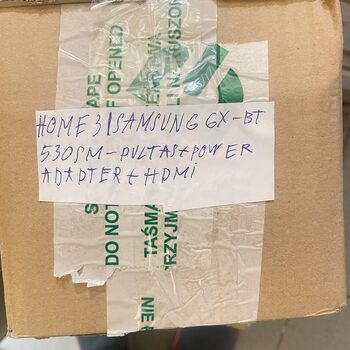 HOME 31SAMSUNG GX-BT
530SM-PULTAS+POWER
ADAPTER+HDMi
TAPE
F OPENED
DO NOT
TAŚMA
PRZYJM